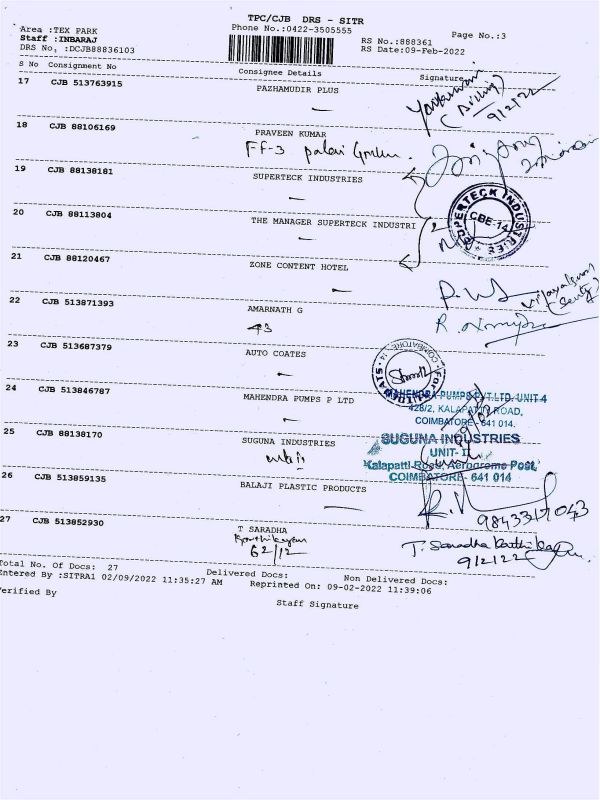 TPC/CJB DRS - SITR
Area :TEX PARK
Phone No.:0422-3505555
Page No.:3
Staff :INBARAJ
RS No.:888361
DRS No. :DCJB88836103
RS Date:09-Feb-2022
S No Consignment No Consignee Details Signature
17 CJB 513763915 PAZHAMUDIR PLUS
9/2/22
18 CJB 88106169 PRAVEEN KUMAR
FF-3
19 CJB 88138181 SUPERTECK INDUSTRIES
SUPERTECK INDUSTRIES
CBE-14
20 CJB 88113804 THE MANAGER SUPERTECK INDUSTRI
21 CJB 88120467 ZONE CONTENT HOTEL
22 CJB 513871393 AMARNATH G
23 CJB 513687379 AUTO COATES
COIMBATORE - 14
24 CJB 513846787 MAHENDRA PUMPS P LTD
MAHENDRA PUMPS PVT.LTD. UNIT-4
428/2, KALAPATTI ROAD,
COIMBATORE - 641 014.
25 CJB 88138170 SUGUNA INDUSTRIES
SUGUNA INDUSTRIES
UNIT- II
Kalapatti Road, Aerodrome Post,
COIMBATORE- 641 014
26 CJB 513859135 BALAJI PLASTIC PRODUCTS
27 CJB 513852930 T SARADHA
62/12
T. Saradha
9/2/22
Total No. Of Docs: 27 Delivered Docs: Non Delivered Docs:
Entered By :SITRA1 02/09/2022 11:35:27 AM Reprinted On: 09-02-2022 11:39:06
erified By
Staff Signature